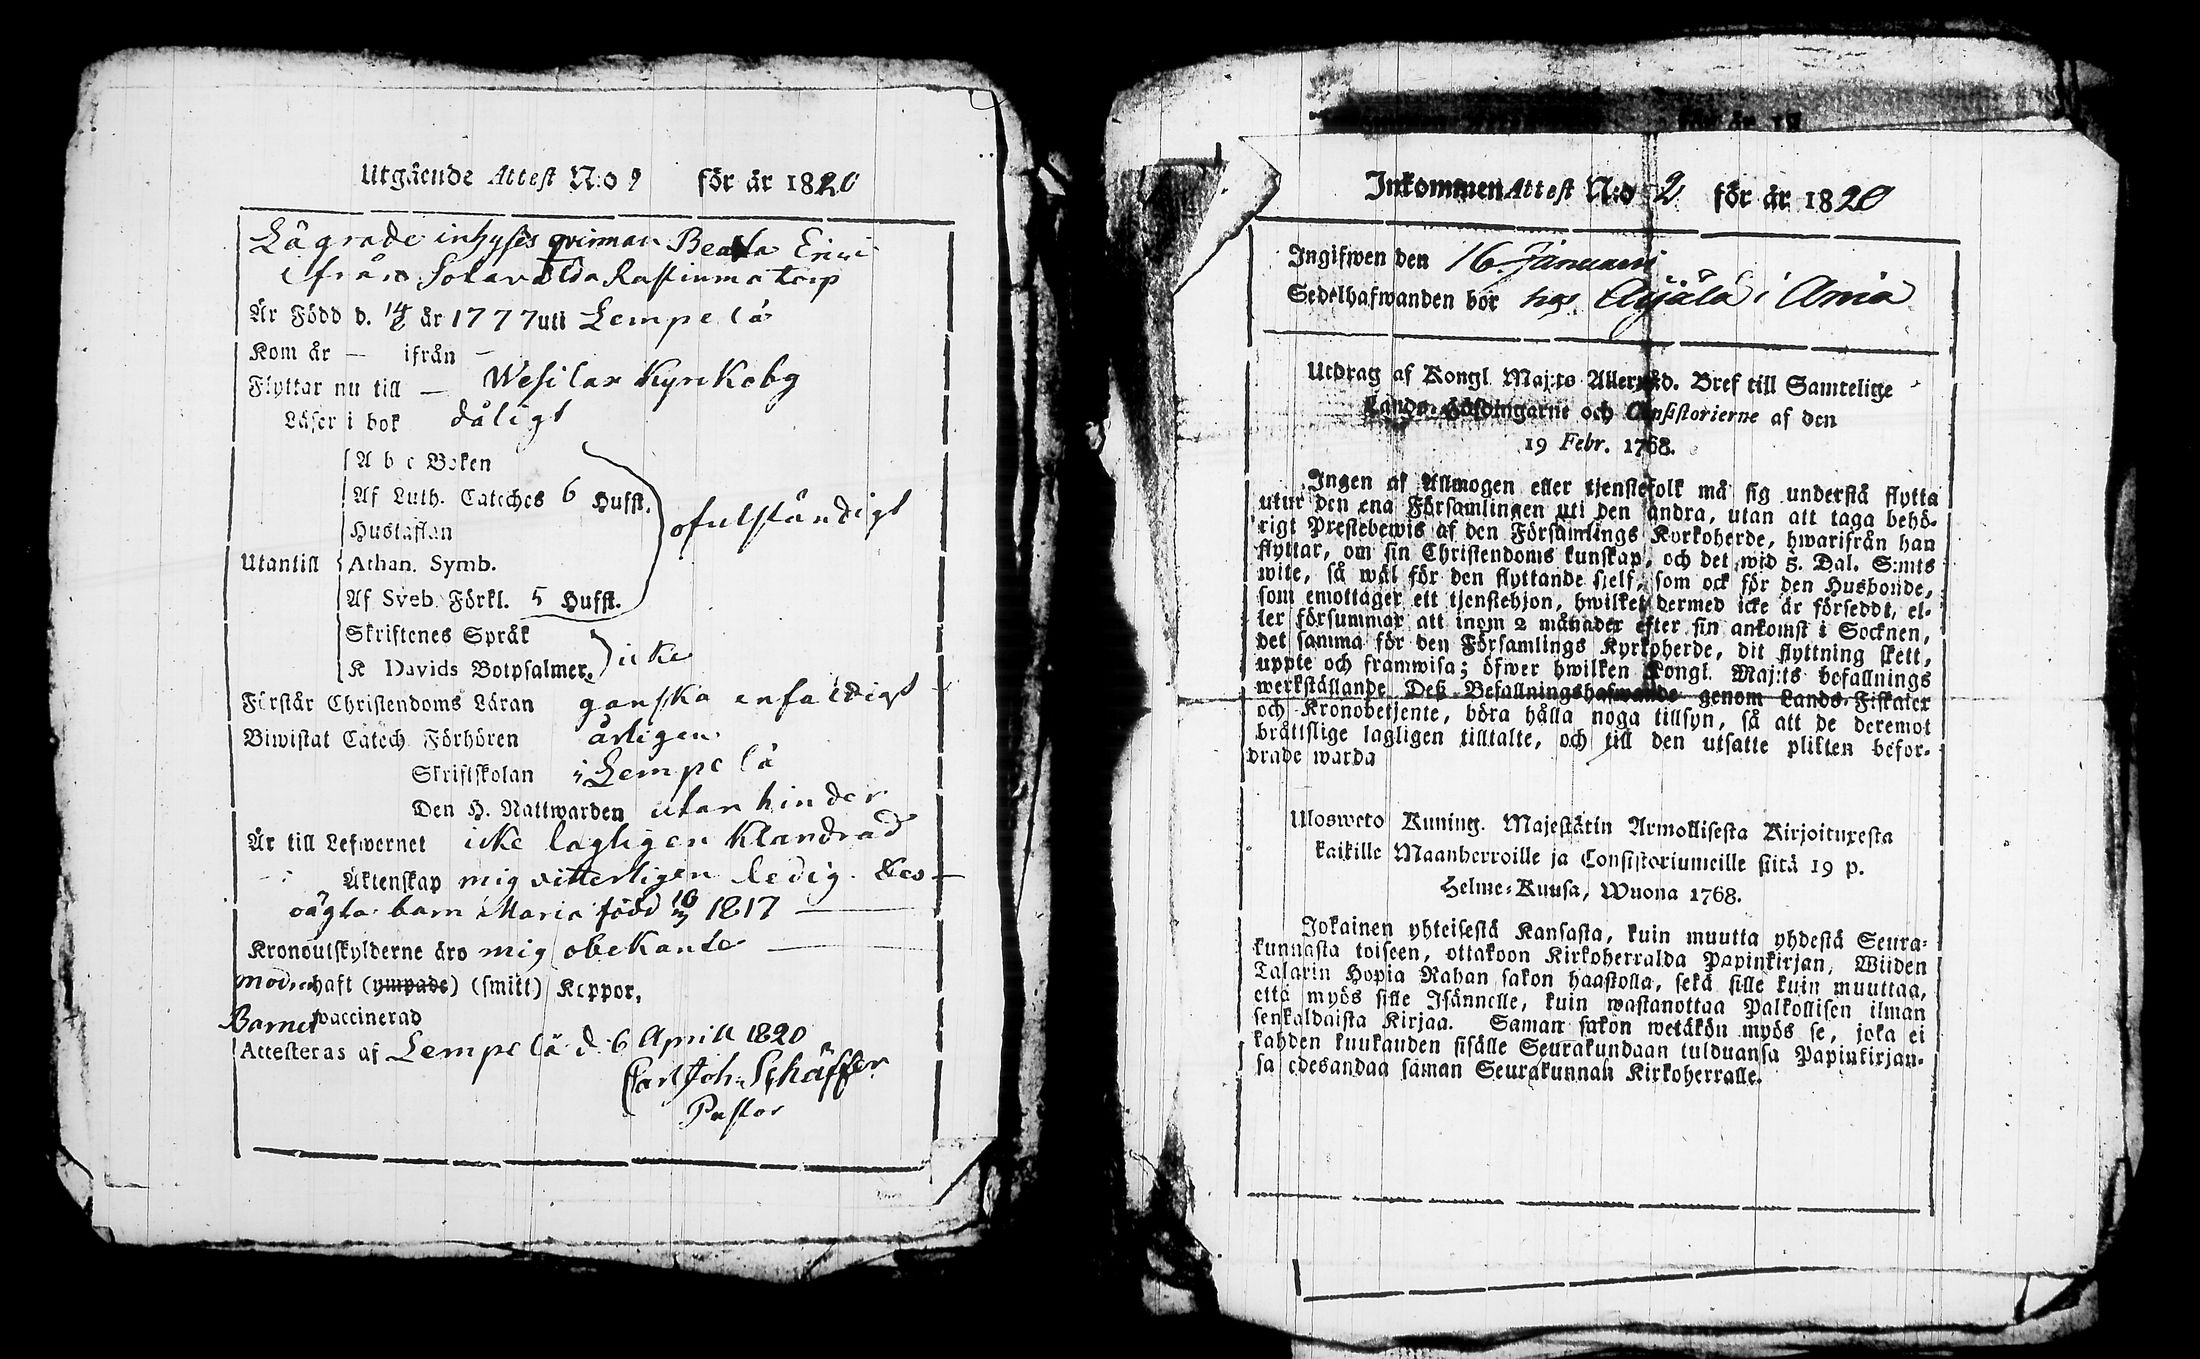 Utgående Attest N:o 9 för år 1820
Lägrade inhyses qvinnan Beata Erici
ifrån Sotavalda Rastiunma torp
Är Född d. 14/2 år 1777 uti Lempelä
Kom år — ifrån —
Flyttar nu till — Wesilax Kyrckoby
Läser i bok dåligt
A b c Boken
Af Luth. Cateches 6 Hufst.
Hustaflan
ofulständigt
Utantill
Athan. Symb.
Af Sveb. Förkl. 5 Hufst.
Skriftenes Språk
K Davids Botpsalmer.
icke
Förstår Christendoms Läran ganska enfaldigt
Biwistat Catech. Förhören årligen
Skriftskolan i Lempelä
Den H. Nattwarden utan hinder
Är till Lefwernet icke lagligen klandrad
Äktenskap mig vitterligen ledig. Des
oägta barn Maria född 1817
Kronoutskylderne äro mig obekante
modren haft (ympade) (smitt) Koppor,
Barnet vaccinerad
Attesteras af Lempelä d. 6 Aprill 1820
Carl Joh. Schäffer
Pastor
för år 18
Inkommen Attest N:o 2 för år 1820
Ingifwen den 16 Januari
Sedelhafwanden bor hos Anjala i Ania
Utdrag af Kongl. Maj:ts Allernåd. Bref till Samtelige
Lands-Höfdingarne och Consistorierne af den
19 Febr. 1768.
Ingen af Allmogen eller tjenstefolk må sig understå flytta
utur den ena Församlingen uti den andra, utan att taga behö-
rigt Prestebewis af den Församlings Kyrkoherde, hwarifrån han
flyttar, om sin Christendoms kunskap, och det wid 5. Dal. S:mts
wite, så wäl för den flyttande sjelf, som ock för den Husbonde,
som emottager ett tjenstehjon, hwilket dermed icke är försedt, el-
ler försummar att inom 2 månader efter sin ankomst i Socknen,
det samma för den Församlings Kyrkoherde, dit flyttning skett,
uppte och framwisa; öfwer hwilken Kongl. Maj:ts befallnings
werkställande Deß Befallningshafwande genom Lands-Fiskaler
och Kronobetjente, böra hålla noga tillsyn, så att de deremot
bråttslige lagligen tilltalte, och till den utsatte plikten befor-
drade warda
Ulosweto Kuning. Majestätin Armollisesta Kirjoituxesta
kaikille Maanherroille ja Consistoriumeille siitä 19 p.
Helme-Kuusa, Wuona 1768.
Jokainen yhteisestä Kansasta, kuin muutta yhdestä Seura-
kunnasta toiseen, ottakoon Kirkoherralda Papinkirjan, Wiiden
Talarin Hopia Rahan sakon haastolla, sekä sille kuin muuttaa,
että myös sille Isännelle, kuin wastanottaa Palkollisen ilman
senkaldaista Kirjaa. Saman sakon wetäkön myös se, joka ei
kahden kuukauden sisälle Seurakundaan tulduansa Papinkirjan-
sa edesandaa säman Seurakunnan Kirkoherralle.